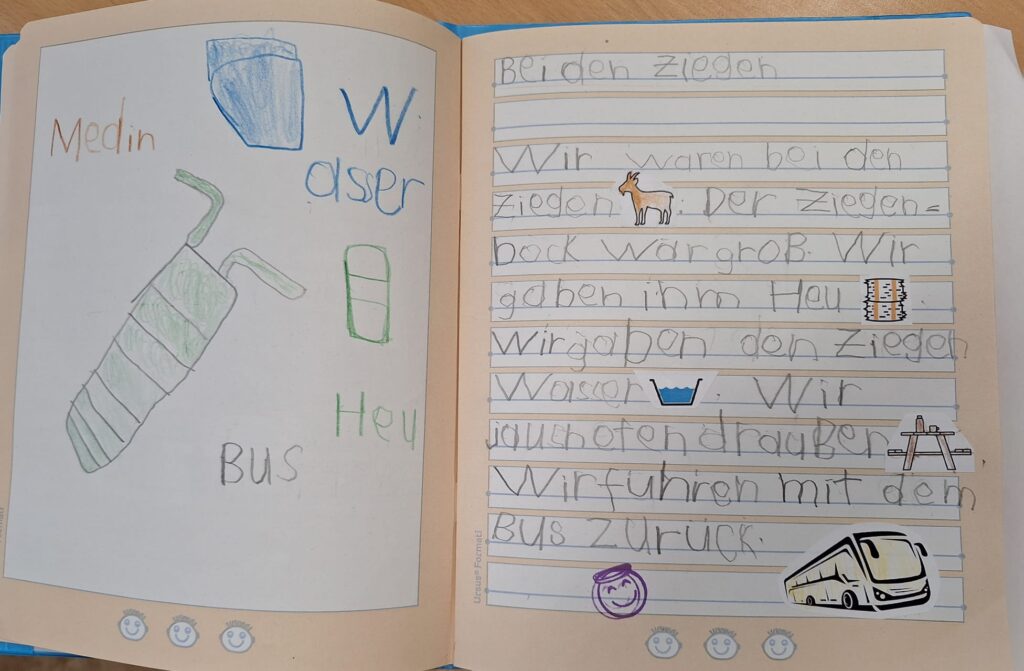 Medin
W.
asser
Heu
BUS
Bei den Ziegen
Wir waren bei den
Ziegen. Der Ziegen=
bock war groß. Wir
gaben ihm Heu.
Wir gaben den Ziegen
Wasser. Wir
draußen.
Wir fuhren mit dem
Bus zurück.